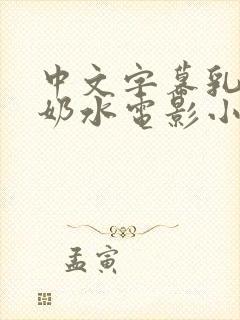 中文字幕乳
奶水电影小
孟寅